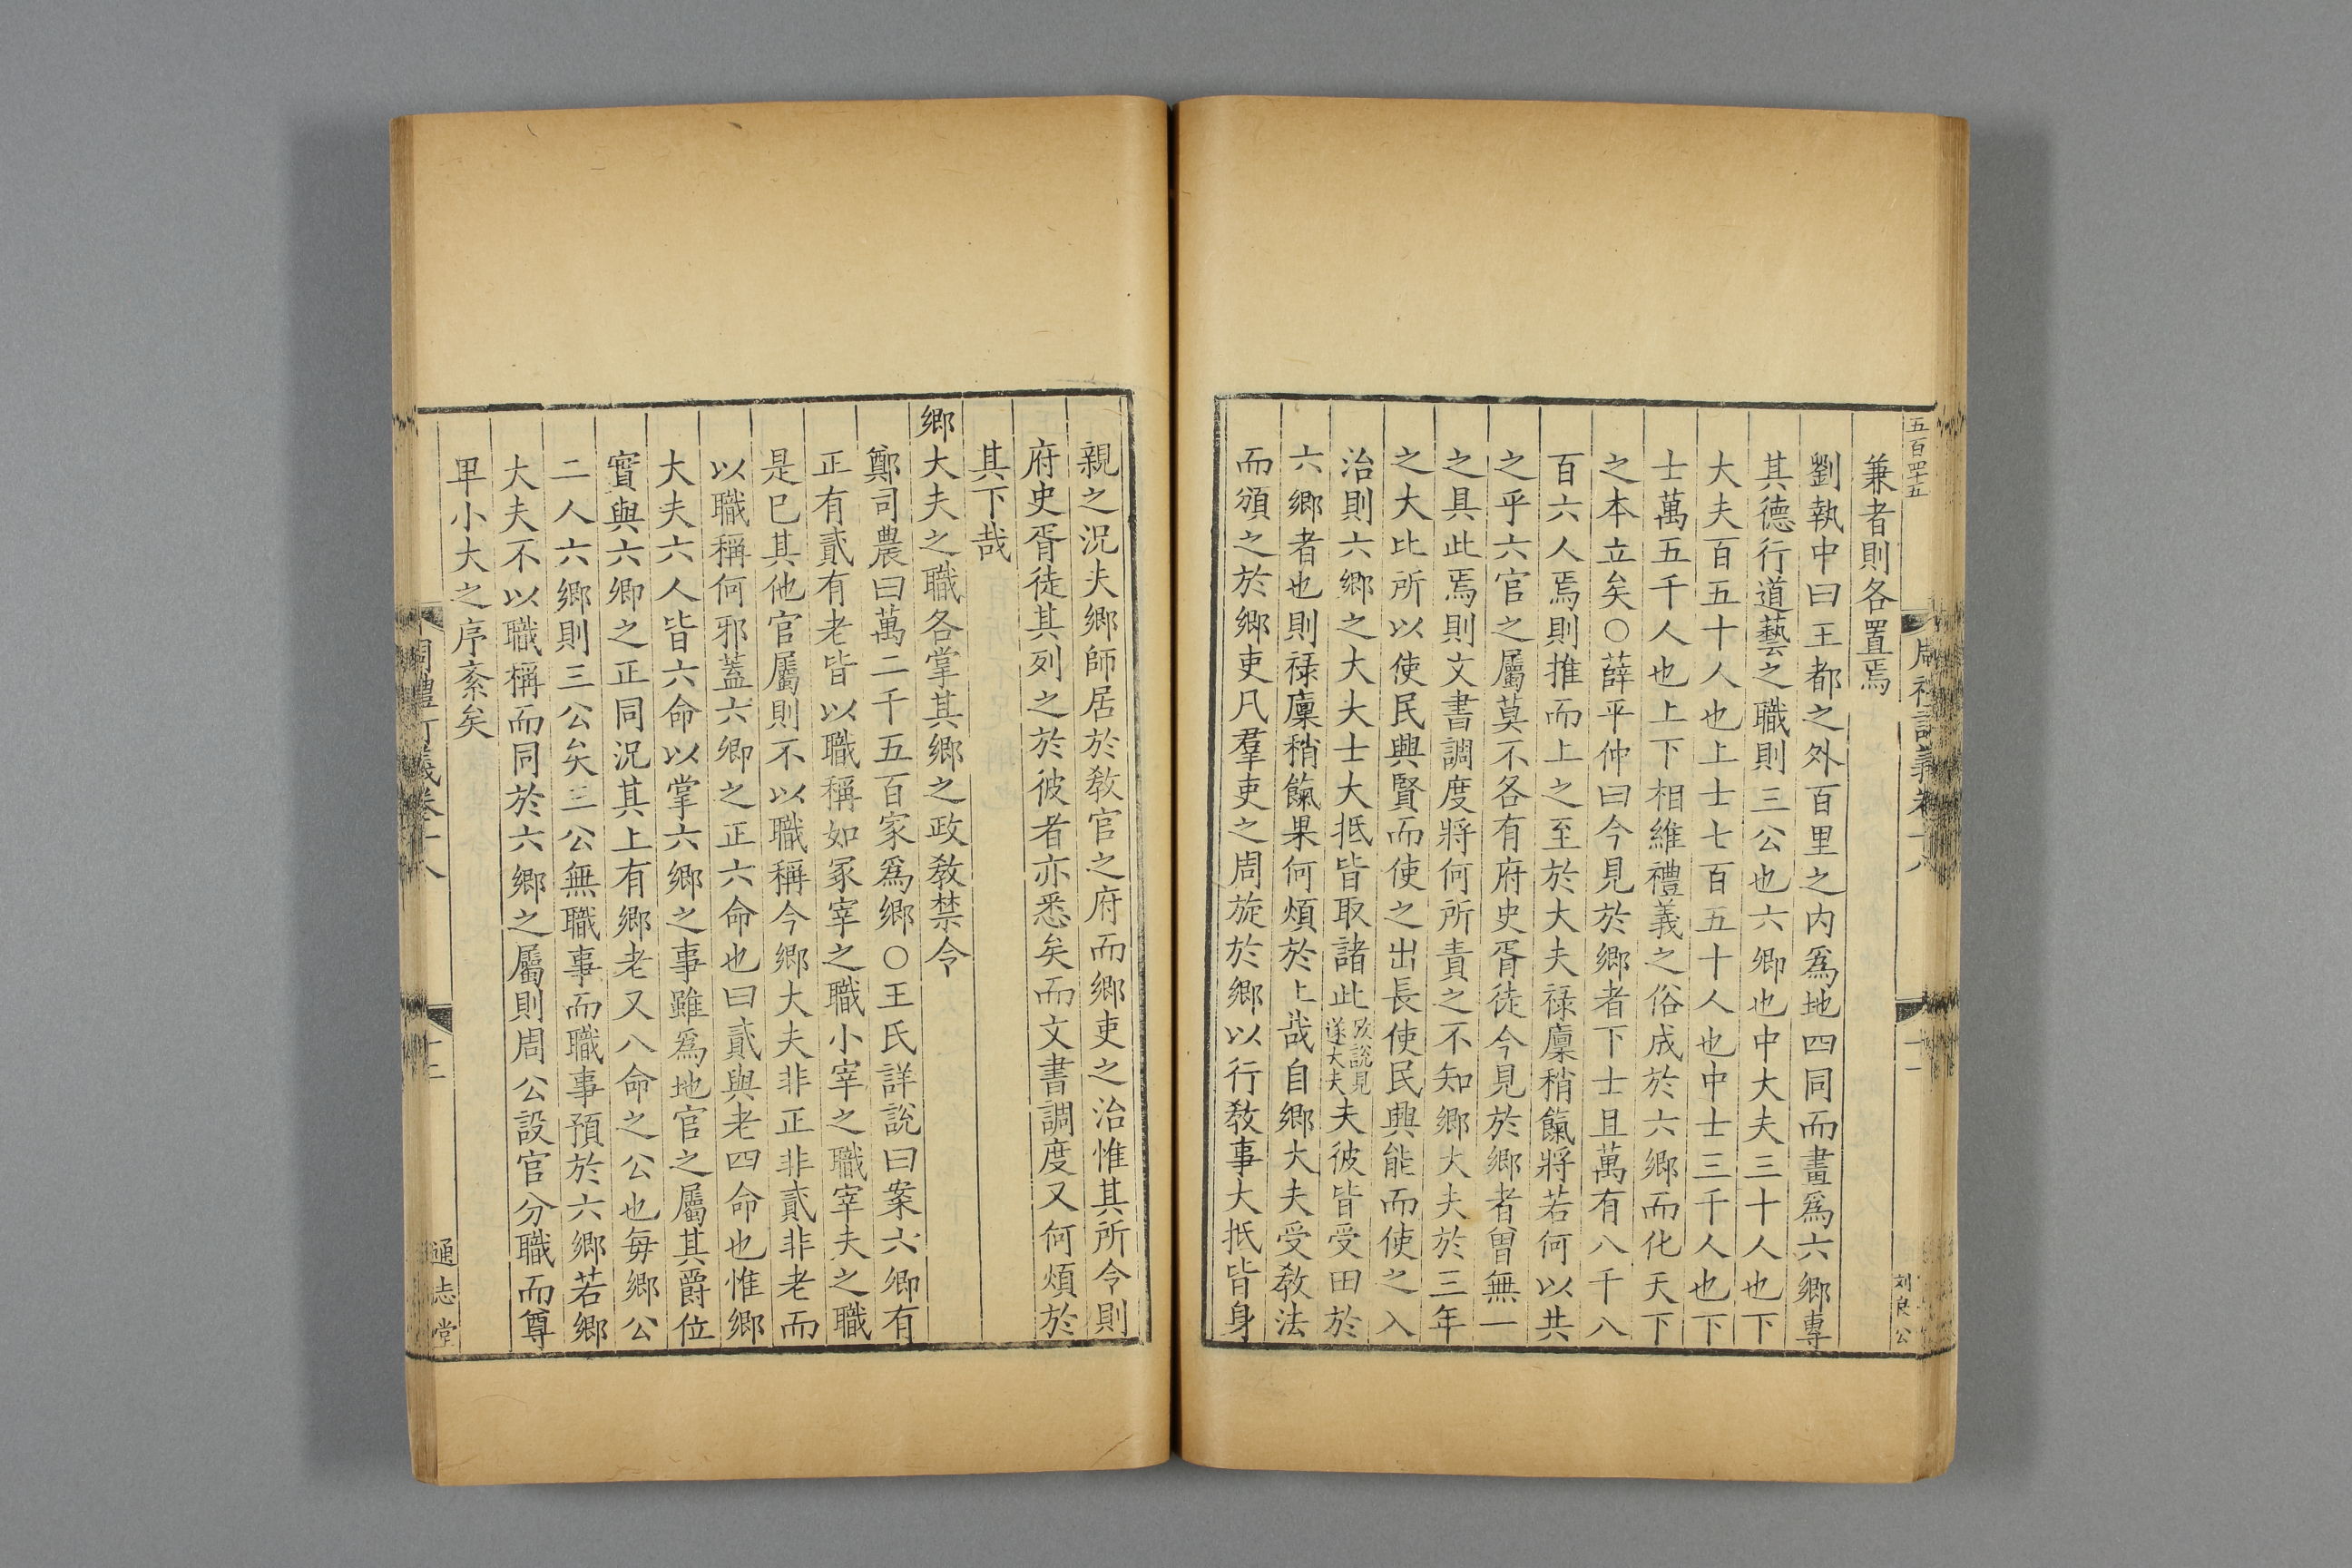 五百四十五
兼者則各置焉
劉執中曰王都之外百里之内爲地四同而畫爲六鄉專
其德行道藝之職則三公也六卿也中大夫三十人也下
大夫百五十人也上士七百五十人也中士三千人也下
士萬五千人也上下相維禮義之俗成於六鄉而化天下
之本立矣○薛平仲曰今見於鄉者下士且萬有八千八
百六人焉則推而上之至於大夫祿廩稍餼將若何以共
之乎六官之屬莫不各有府史胥徒今見於鄉者曾無一
之具此焉則文書調度將何所責之不知鄉大夫於三年
之大比所以使民興賢而使之出長使民興能而使之入
治則六鄉之大夫士大抵皆取諸此 說見遂大夫 夫彼皆受田於
六鄉者也則祿廩稍餼果何煩於上哉自鄉大夫受敎法
而頒之於鄉吏凡羣吏之周旋於鄉以行敎事大抵皆身
周禮訂義卷十八
十二
刘良公
親之況夫鄉師居於敎官之府而鄉吏之治惟其所令則
府史胥徒其列之於彼者亦悉矣而文書調度又何煩於
其下哉
鄉大夫之職各掌其鄉之政敎禁令
鄭司農曰萬二千五百家爲鄉○王氏詳說曰案六卿有
正有貳有老皆以職稱如冢宰之職小宰之職宰夫之職
是已其他官屬則不以職稱今鄉大夫非正非貳非老而
以職稱何邪蓋六卿之正六命也曰貳與老四命也惟鄉
大夫六人皆六命以掌六鄉之事雖爲地官之屬其爵位
實與六卿之正同況其上有鄉老又八命之公也每鄉公
二人六鄉則三公矣三公無職事而職事預於六鄉若鄉
大夫不以職稱而同於六鄉之屬則周公設官分職而尊
卑小大之序紊矣
周禮訂義卷十八
十二
通志堂